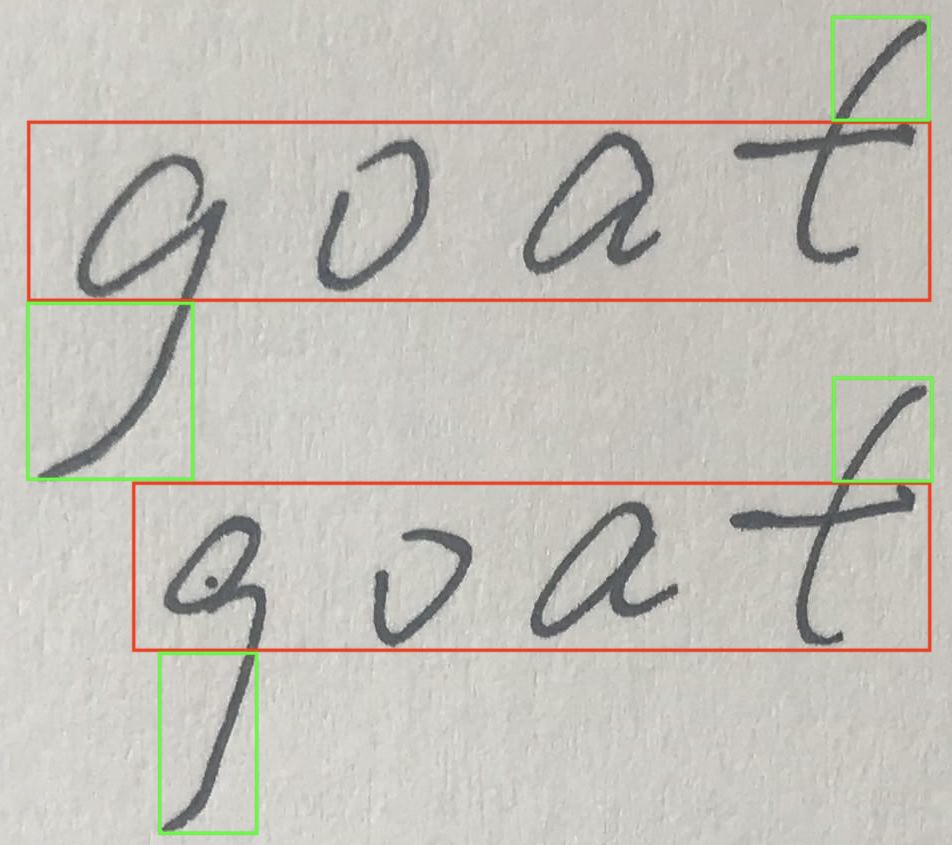 goat
goat